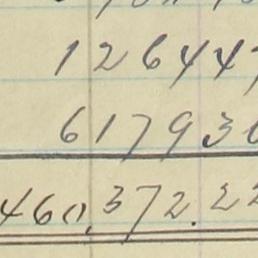 12644
61793
460,372.22